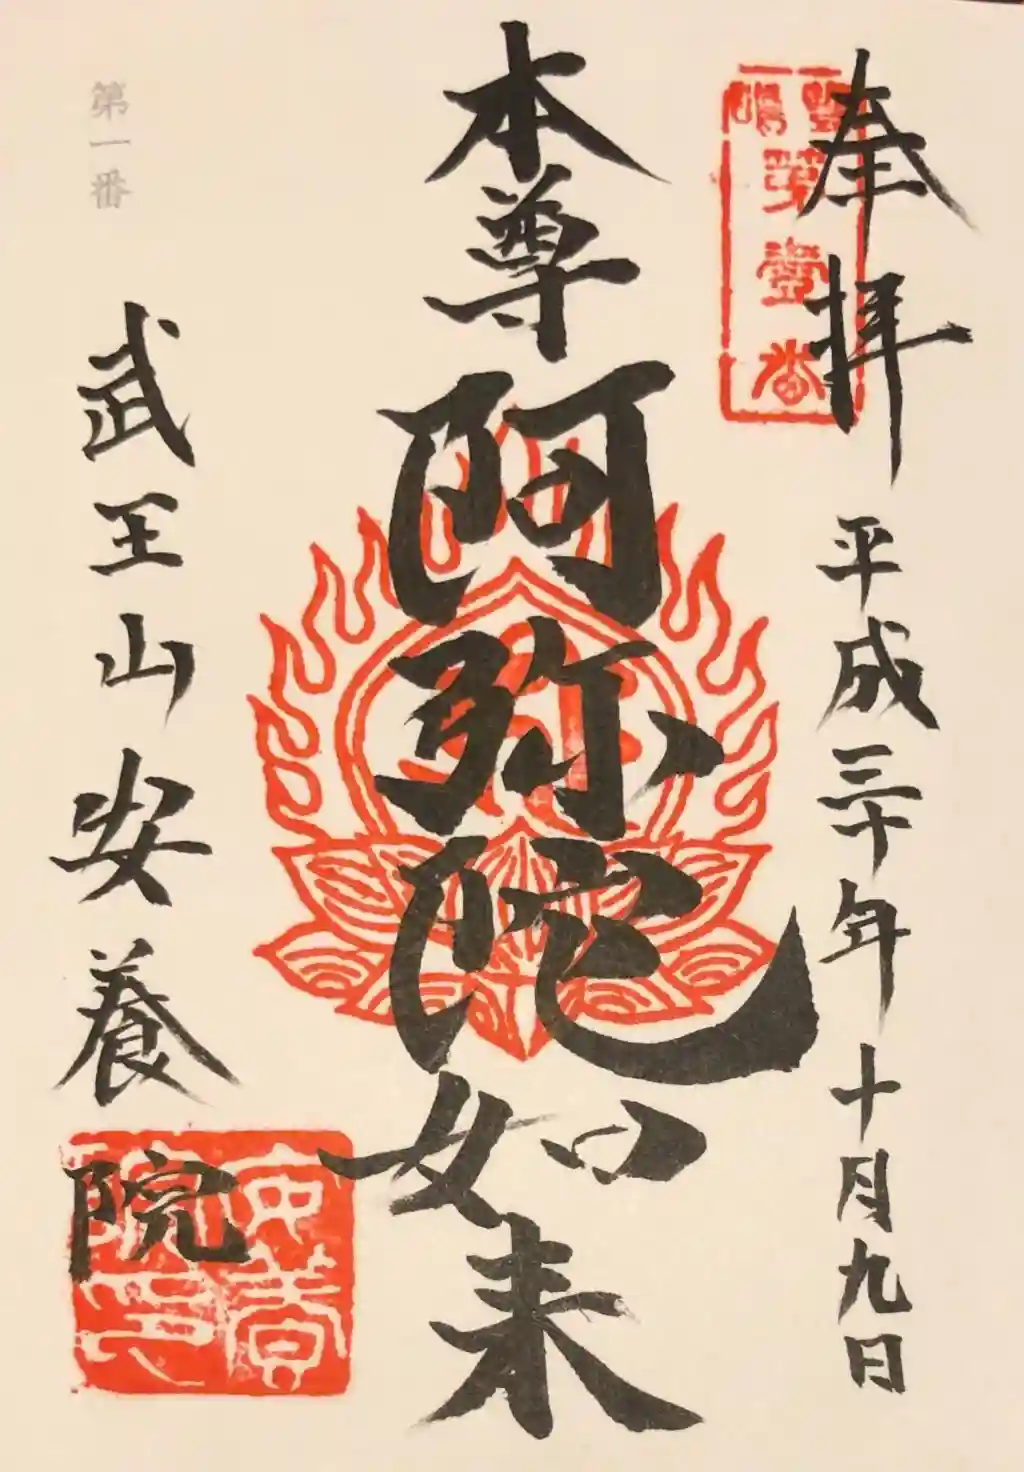 奉拝
平成三十年十月九日
第壹番
本尊阿弥陀如来
第一番
武王山安養院
安養院印